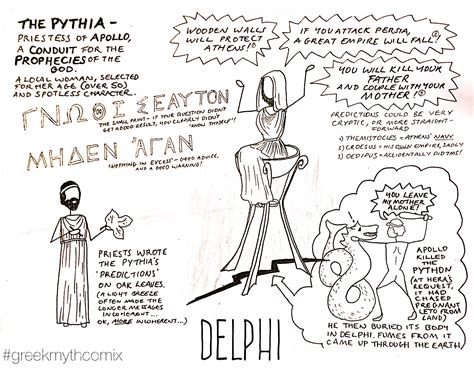 THE PYTHIA -
PRIESTESS OF APOLLO,
A CONDUIT FOR THE
PROPHECIES OF THE
GOD.
A LOCAL WOMAN, SELECTED
FOR HER AGE (OVER 50)
AND SPOTLESS CHARACTER.
ΓΝΩΘΙ ΣΕΑΥΤΟΝ
(THE SMALL PRINT - IF YOUR QUESTION DIDN'T
GET A GOOD RESULT, YOU CLEARLY DIDN'T
'KNOW THYSELF'!)
ΜΗΔΕΝ ἌΓΑΝ
'NOTHING IN EXCESS' - GOOD ADVICE,
AND A GOOD WARNING!
WOODEN WALLS
WILL PROTECT
ATHENS!①
IF YOU ATTACK PERSIA,
A GREAT EMPIRE WILL FALL!②
YOU WILL KILL YOUR
FATHER
AND COUPLE WITH YOUR
MOTHER!③
PREDICTIONS COULD BE VERY
CRYPTIC, OR MORE STRAIGHT-
FORWARD
1) THEMISTOCLES = ATHENS' NAVY
2) CROESUS = HIS OWN EMPIRE, SADLY
3) OEDIPUS - ACCIDENTALLY DID THIS!
PRIESTS WROTE
THE PYTHIA'S
'PREDICTIONS'
ON OAK LEAVES.
(A LIGHT BREEZE
OFTEN MADE THE
LONGER MESSAGES
INCOHERENT...
OK, MORE INCOHERENT...)
YOU LEAVE
MY MOTHER
ALONE!
APOLLO
KILLED THE
PYTHON
(AT HERA'S
REQUEST,
IT HAD
CHASED
PREGNANT
LETO FROM
LAND)
HE THEN BURIED ITS BODY
IN DELPHI. FUMES FROM IT
CAME UP THROUGH THE EARTH.
DELPHI
#greekmythcomix